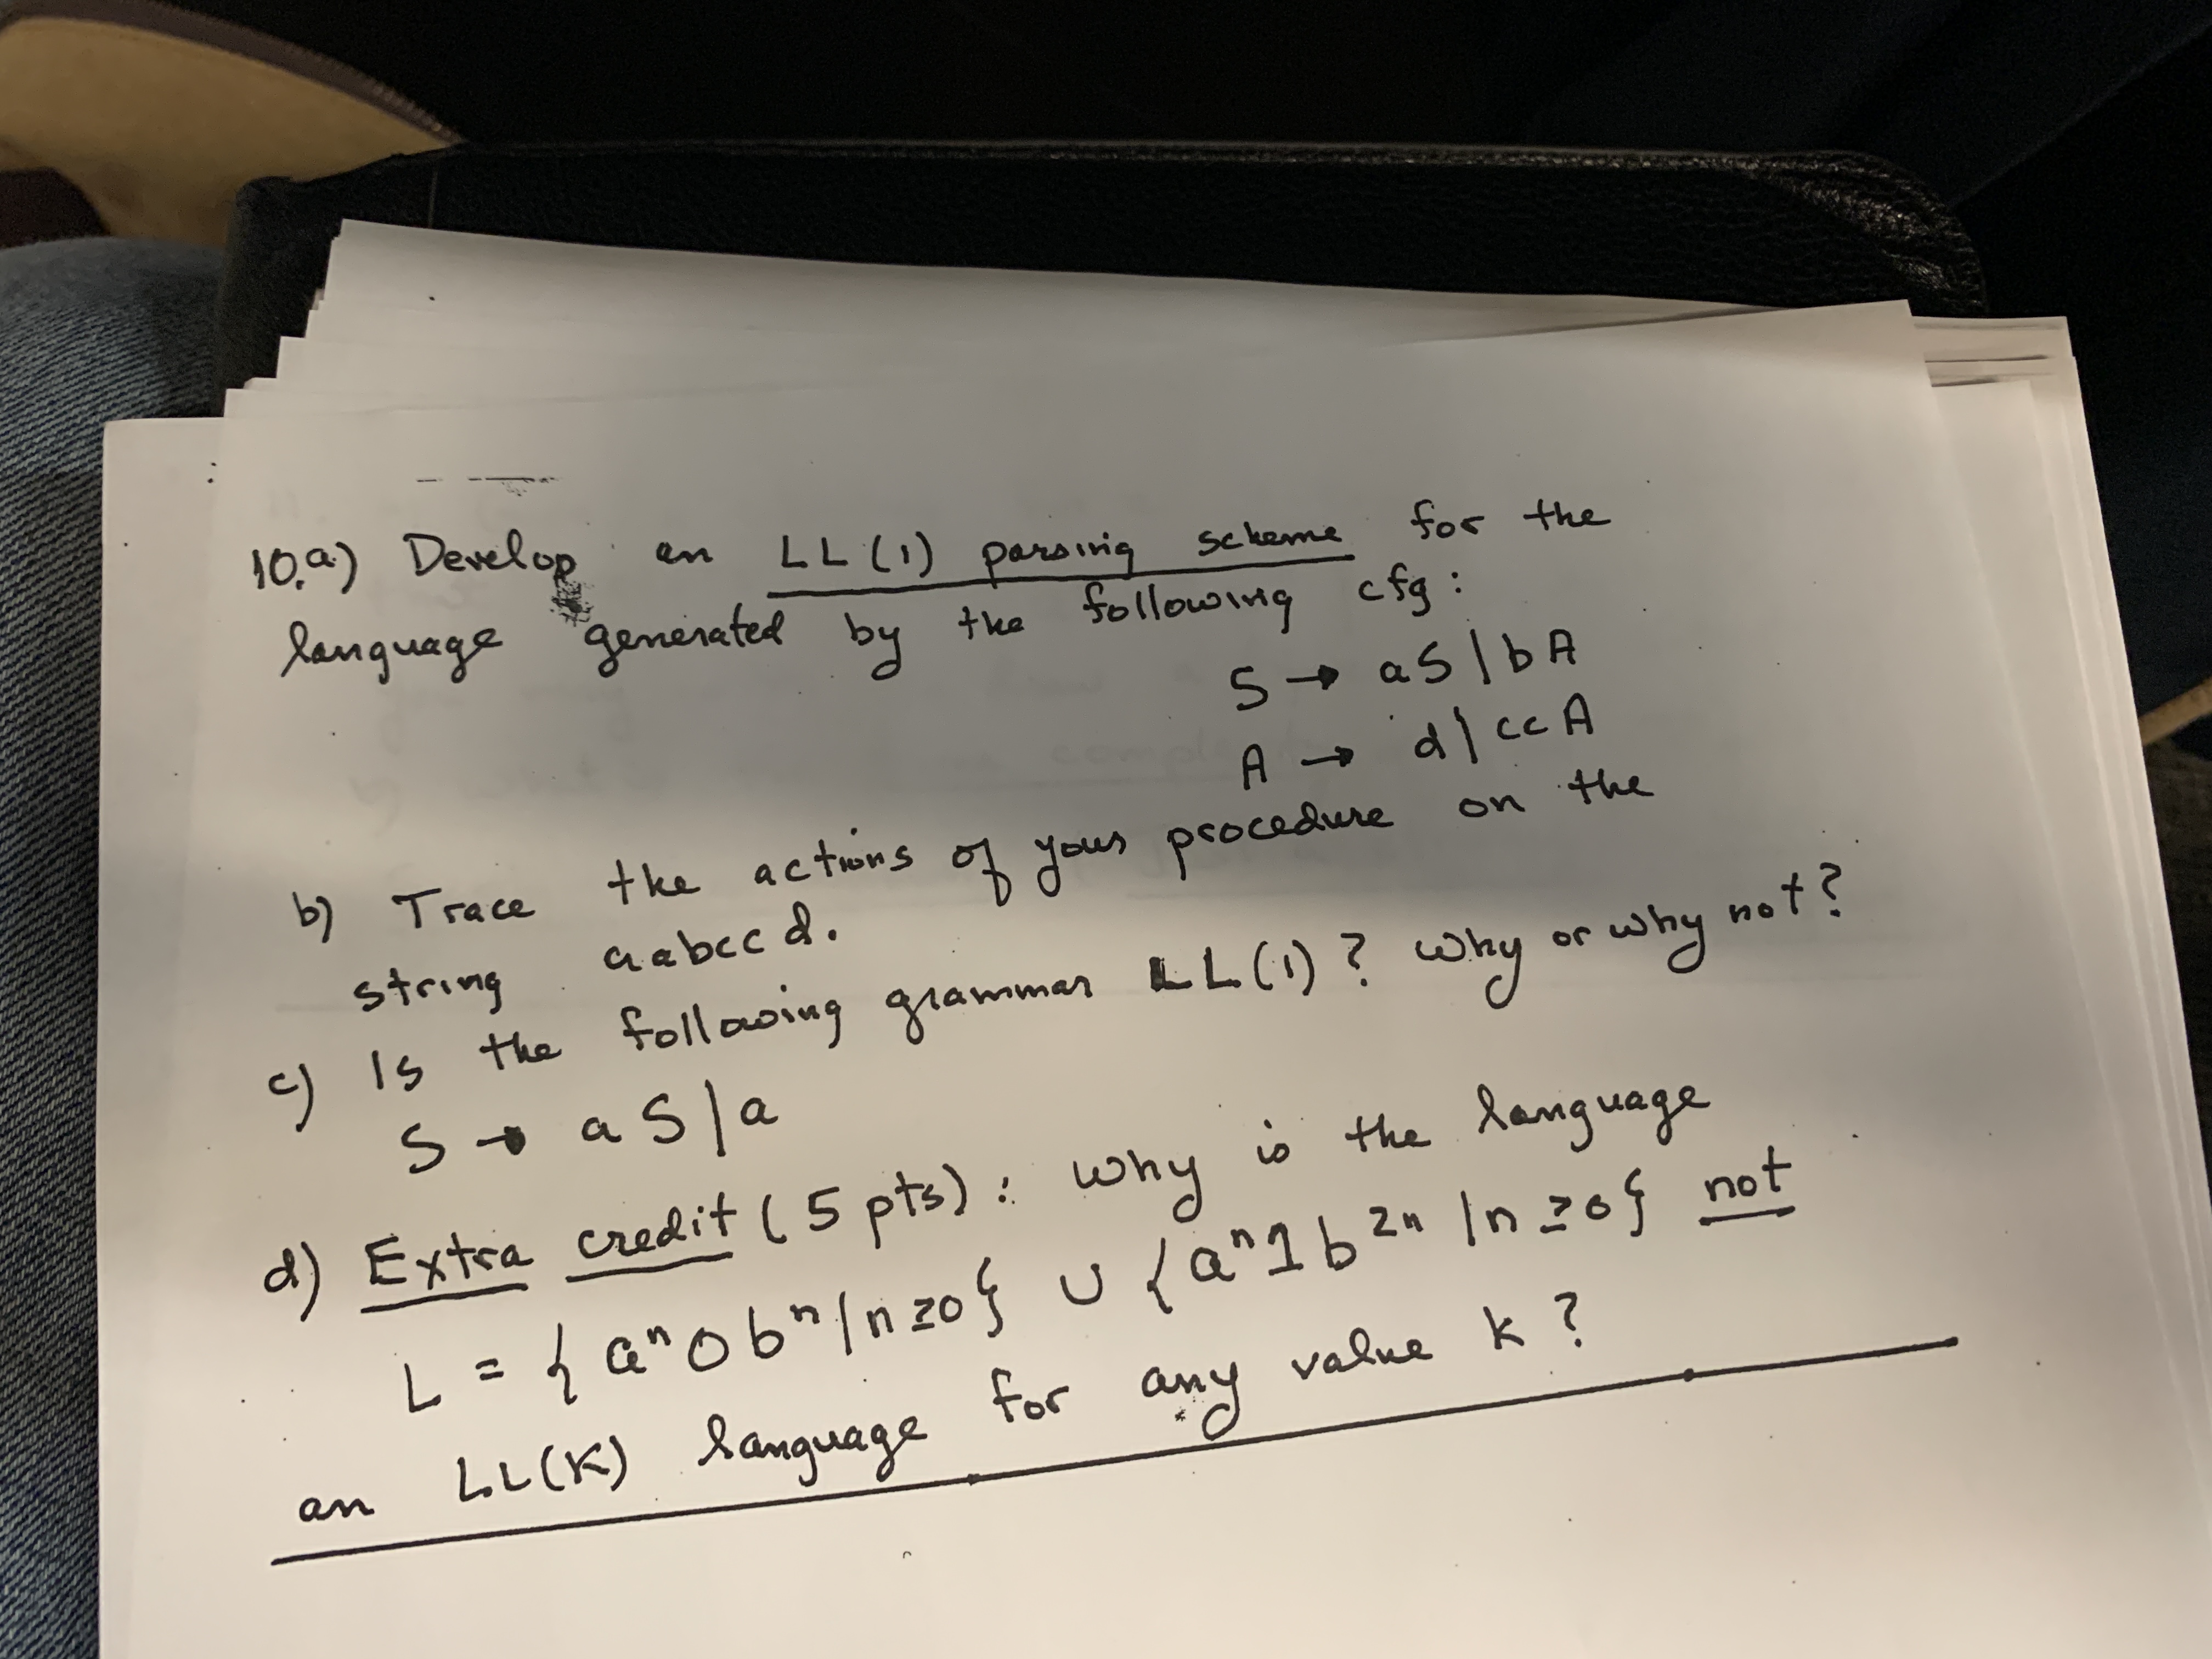 10.a) Develop an LL(1) parsing scheme for the
language generated by the following cfg:
S → aS | bA
A → d | ccA
b) Trace the actions of your procedure on the
string aabccd.
c) Is the following grammar LL(1)? Why or why not?
S → aS | a
d) Extra credit (5 pts): Why is the language
L = { aⁿ 0 bⁿ | n ≥ 0 } ∪ { aⁿ 1 b²ⁿ | n ≥ 0 } not
an LL(K) language for any value K?